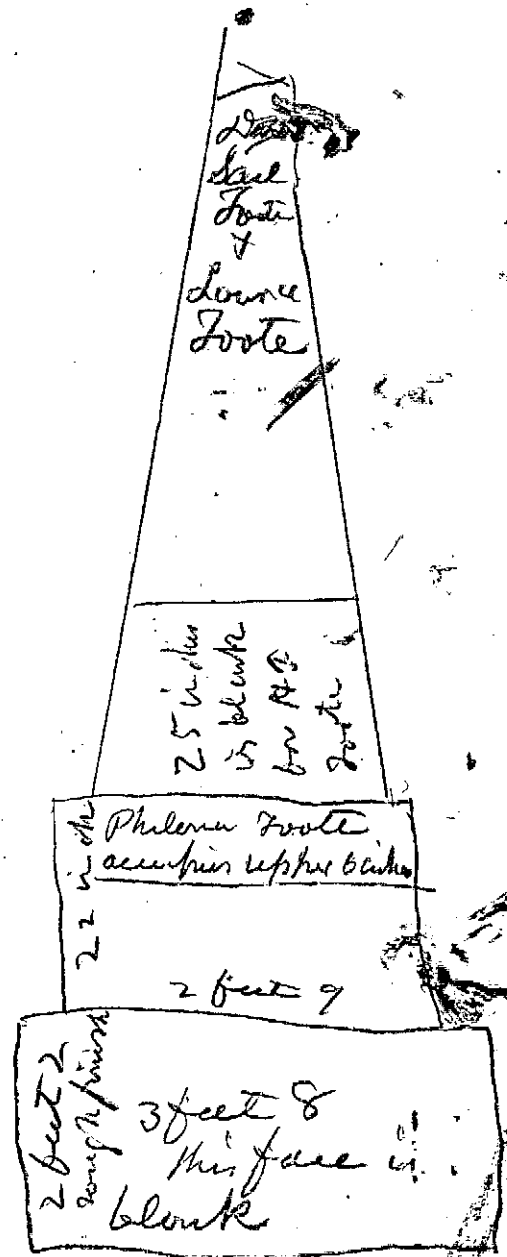 Foote
&
Lounce
Foote
25 inches
is blank
for
Foote
22 inch
Philena Foote
occupies upper 6 inches
2 feet 9
2 feet 2
rough finish
3 feet 8
this face is
blank